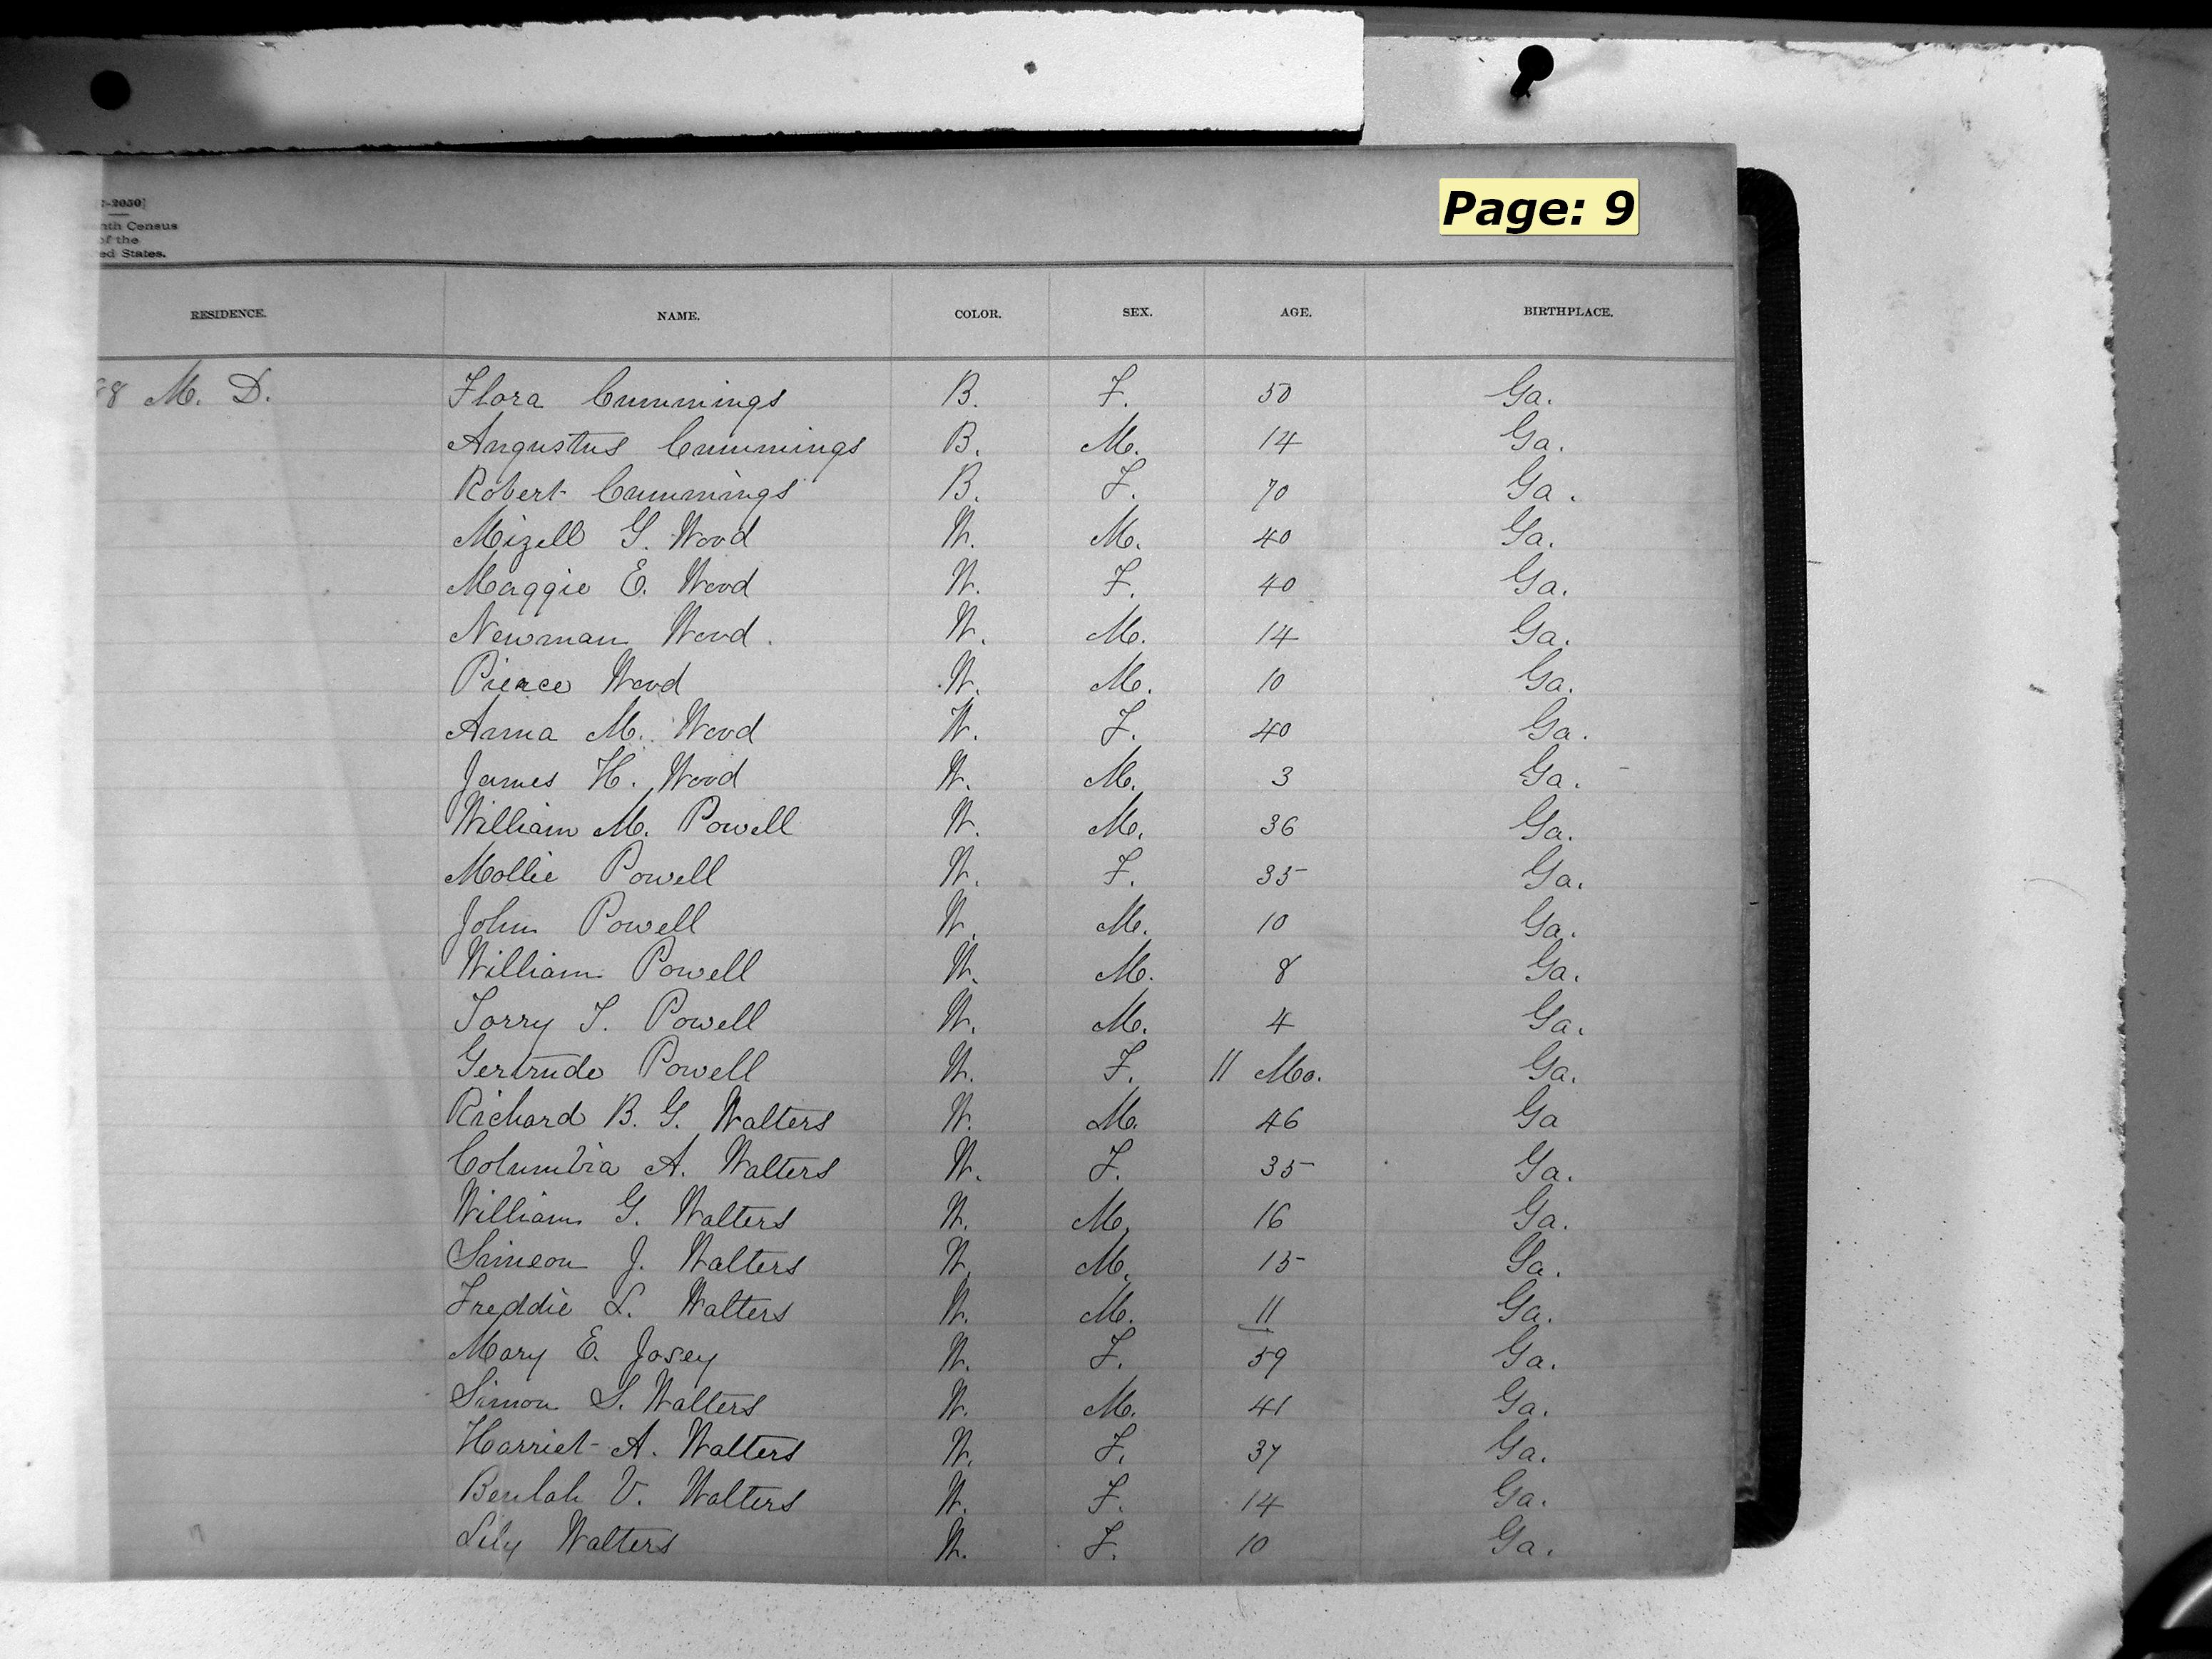 Page: 9
-2050]
nth Census
of the
ed States.
RESIDENCE. NAME. COLOR. SEX. AGE. BIRTHPLACE.
88 M. D. Flora Cummings B. F. 50 Ga.
Augustus Cummings B. M. 14 Ga.
Robert Cummings B. F. 70 Ga.
Mizell G. Wood W. M. 40 Ga.
Maggie E. Wood W. F. 40 Ga.
Newman Wood. W. M. 14 Ga.
Pierce Wood W. M. 10 Ga.
Anna M. Wood W. F. 40 Ga.
James H. Wood W. M. 3 Ga.
William M. Powell W. M. 36 Ga.
Mollie Powell W. F. 35 Ga.
John Powell W. M. 10 Ga.
William Powell W. M. 8 Ga.
Torry T. Powell W. M. 4 Ga.
Gertrude Powell W. F. 11 Mo. Ga.
Richard B. G. Walters W. M. 46 Ga
Columbia A. Walters W. F. 35 Ga.
William G. Walters W. M. 16 Ga.
Simeon J. Walters W. M. 15 Ga.
Freddie L. Walters W. M. 11 Ga.
Mary E. Josey W. F. 59 Ga.
Simon S. Walters W. M. 41 Ga.
Harriet A. Walters W. F. 37 Ga.
Beulah V. Walters W. F. 14 Ga.
Lily Walters W. F. 10 Ga.